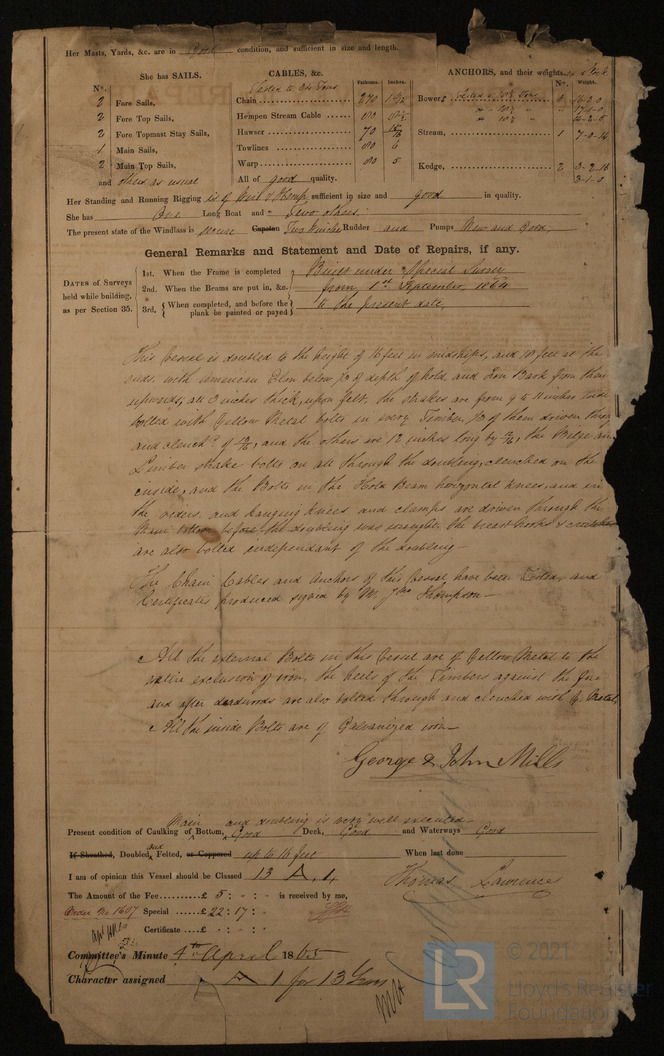 Her Masts, Yards, &c. are in good condition, and sufficient in size and length.
She has SAILS.
CABLES, &c.
Fathoms. Inches.
ANCHORS, and their weights.
No. Weight.
No.
2 Fore Sails,
2 Fore Top Sails,
2 Fore Topmast Stay Sails,
Main Sails,
2 Main Top Sails,
and others as usual
Chain 270
Hempen Stream Cable
Hawser 70
Towlines 80 6
Warp 80 5
All of good quality.
Bower,
Stream, 1 7-0-14
Kedge, 2 3-2-16
3-1-0
Her Standing and Running Rigging is of Wire & Hemp sufficient in size and good in quality.
She has One Long Boat and Two others.
The present state of the Windlass is Capstan Two Winches Rudder and Pumps New and Good.
General Remarks and Statement and Date of Repairs, if any.
DATES of Surveys held while building, as per Section 35.
1st. When the Frame is completed Built under Special Survey
2nd. When the Beams are put in, &c. from 1st September 1864
3rd, When completed, and before the plank be painted or payed to the present date,
This Vessel is doubled to the height of 16 feet in midships, and 18 feet at the
ends, with American Elm below, of depth of hold, and Iron Bark from then
upwards, all 3 inches thick, upon felt, the strakes are from 9 to 11 inches
bolted with Yellow Metal bolts in every Timber, of them driven through
and clench'd of and the others are 12 inches long by the Bilge and
Limber strake bolts on all through the doubling, clenched on the
inside, and the Bolts in the Hold Beam horizontal knees, and in
the riders, and hanging knees and clamps are driven through the
Main bottom before the doubling was wrought, the breast hooks & crutches
are also bolted independant of the doubling -
The Chain Cables and Anchors of this Vessel have been Tested, and
Certificates produced signed by Mr. Jno Thompson -
All the external Bolts in this Vessel are of Yellow Metal to the
entire exclusion of iron, the heels of the Timbers against the fore
and after deadwoods are also bolted through and clenched with Y. Metal,
All the inside Bolts are of Galvanized iron -
George & John Mills
Main and doubling is very well executed -
Present condition of Caulking of Bottom, Good Deck, Good and Waterways Good
If Sheathed, Doubled, and Felted, or Coppered up to 16 feet When last done
I am of opinion this Vessel should be Classed 13 A, 1,
Thomas Lawrence
The Amount of the Fee......£ 5 : - : - is received by me,
Order No 1607 Special ......£ 22 : 17 : -
Certificate ...£ - : - : -
Committee's Minute 4th April 1865
Character assigned A 1 for 13 Years
LR
© 2021
Lloyd's Register
Foundation